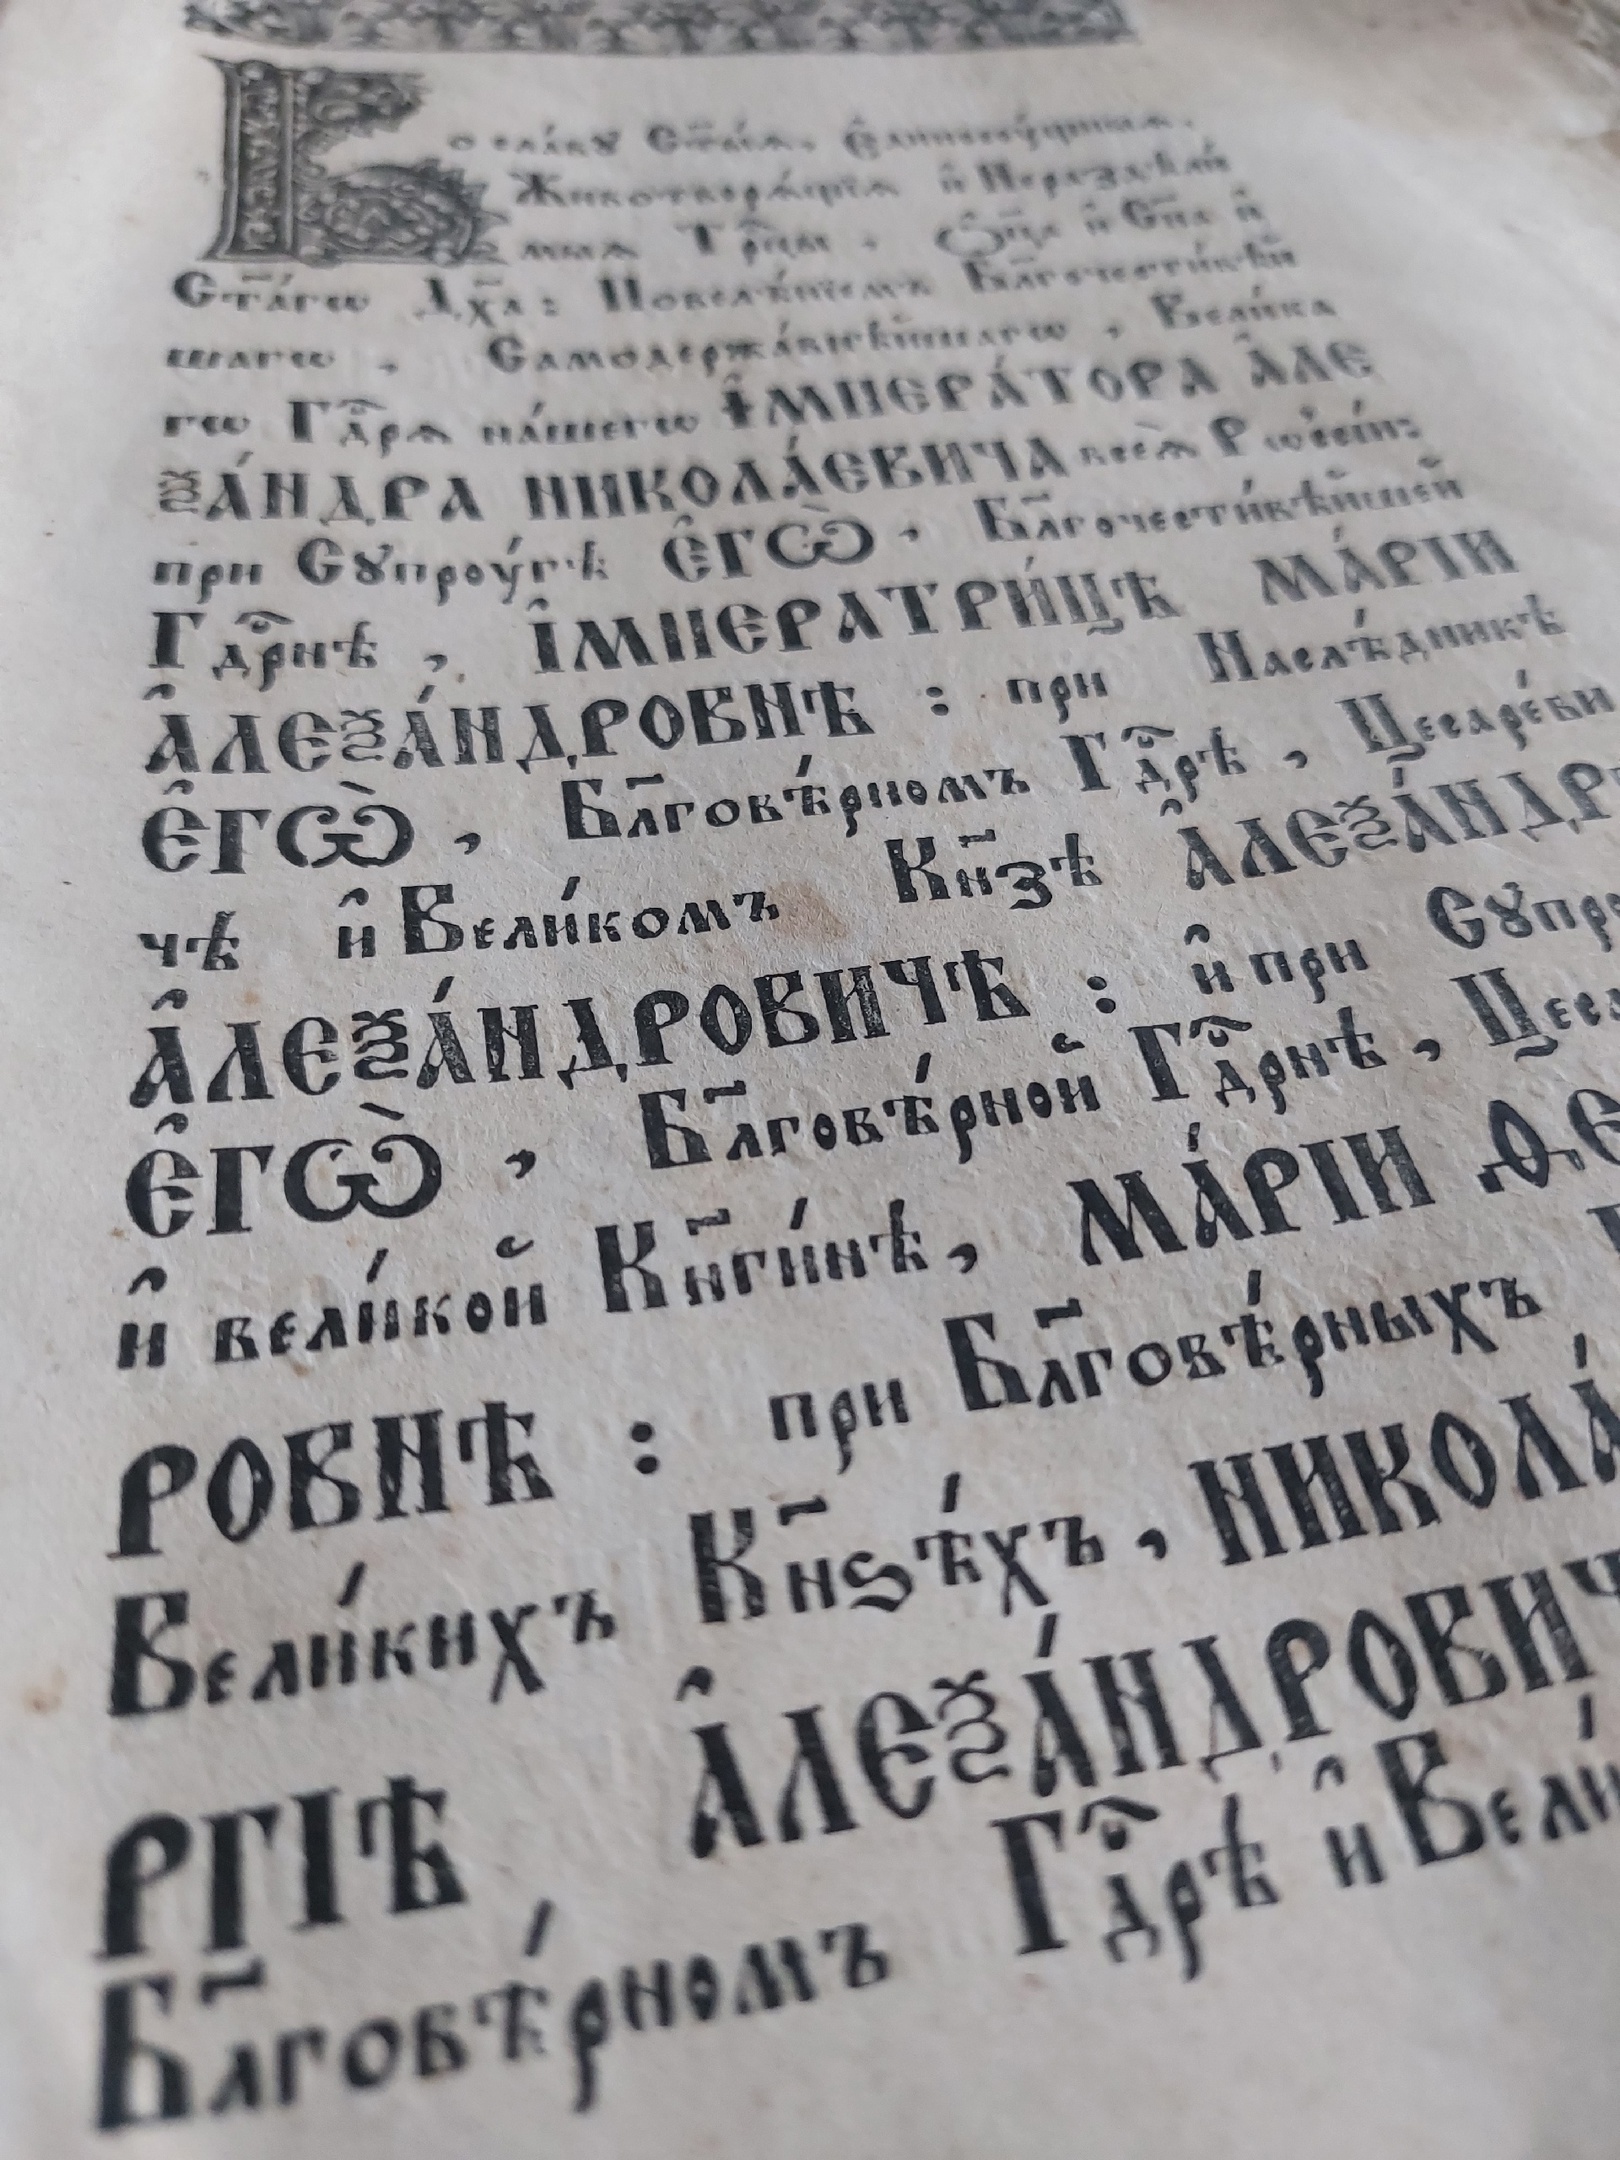 Во сла́вꙋ Ст҃ы́ѧ, Є҆диносꙋ́щныѧ,
Животворѧ́щїѧ и҆ Нераздѣ́ли
мыѧ Трⷪ҇цы, Ѻ҆ц҃а̀ и҆ Сн҃а и҆
Ст҃а́гѡ Дх҃а: Повелѣ́нїемъ Бл҃гочести́вѣй
шагѡ, Самодержа́внѣйшагѡ, Вели́ка
гѡ Гдⷭ҇рѧ на́шегѡ І҆МПЕРА́ТОРА А҆ЛЕ
ѮА́НДРА НИКОЛА́ЕВИЧА всеѧ̀ Рѡссі́и:
при Сꙋпрꙋ́гѣ Є҆ГѠ̀, Бл҃гочести́вѣйшей
Гдⷭ҇рнѣ, І҆МПЕРАТРИ́ЦѢ МА́РІИ
А҆ЛЕѮА́НДРОВНѢ: при Наслѣ́дникѣ
Є҆ГѠ̀, Бл҃говѣ́рномъ Гдⷭ҇рѣ, Цесаре́ви
чѣ и҆ Вели́комъ Кн҃зѣ А҆ЛЕѮА́НДР
А҆ЛЕѮА́НДРОВИЧѢ: и҆ при Сꙋпрꙋ
Є҆ГѠ̀, Бл҃говѣ́рной Гдⷭ҇рнѣ, Цеса
и҆ вели́кой Кн҃ги́нѣ, МА́РІИ ѲЕ
РОВНѢ: при Бл҃говѣ́рныхъ
Вели́кихъ Кн҃ѕѣ́хъ, НИКОЛА́
РГІѢ А҆ЛЕѮА́НДРОВИЧ
Бл҃говѣ́рномъ Гдⷭ҇рѣ и҆ Вели́